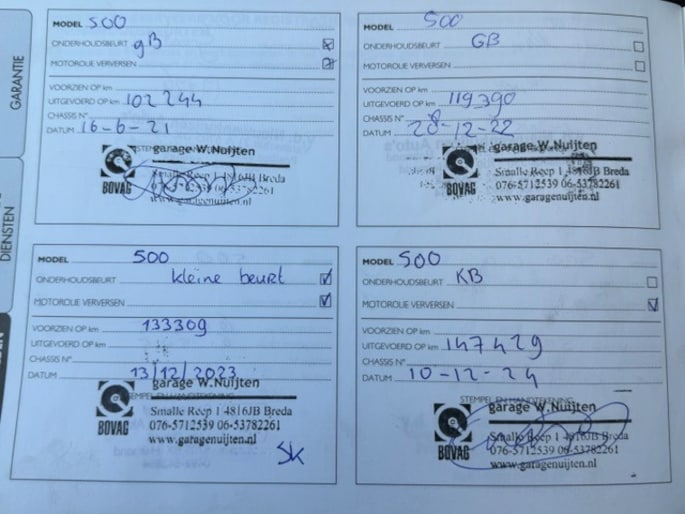 GARANTIE
DIENSTEN
MODEL 500
ONDERHOUDSBEURT gB
MOTOROLIE VERVERSEN
VOORZIEN OP km
UITGEVOERD OP km 102244
CHASSIS N°
DATUM 16-6-21
garage W.Nuijten
Smalle Reep 1 4816JB Breda
076-5712539 06-53782261
www.garagenuijten.nl
BOVAG
MODEL 500
ONDERHOUDSBEURT GB
MOTOROLIE VERVERSEN
VOORZIEN OP km
UITGEVOERD OP km 119390
CHASSIS N°
DATUM 28-12-22
garage W.Nuijten
Smalle Reep 1 4816JB Breda
076-5712539 06-53782261
www.garagenuijten.nl
BOVAG
MODEL 500
ONDERHOUDSBEURT kleine beurt
MOTOROLIE VERVERSEN
VOORZIEN OP km 133309
UITGEVOERD OP km
CHASSIS N°
DATUM 13/12/2023
garage W.Nuijten
Smalle Reep 1 4816JB Breda
076-5712539 06-53782261
www.garagenuijten.nl
BOVAG
SK
MODEL 500
ONDERHOUDSBEURT KB
MOTOROLIE VERVERSEN
VOORZIEN OP km
UITGEVOERD OP km 147429
CHASSIS N°
DATUM 10-12-24
STEMPEL EN HANDTEKENING
garage W.Nuijten
Smalle Reep 1 4816JB Breda
076-5712539 06-53782261
www.garagenuijten.nl
BOVAG